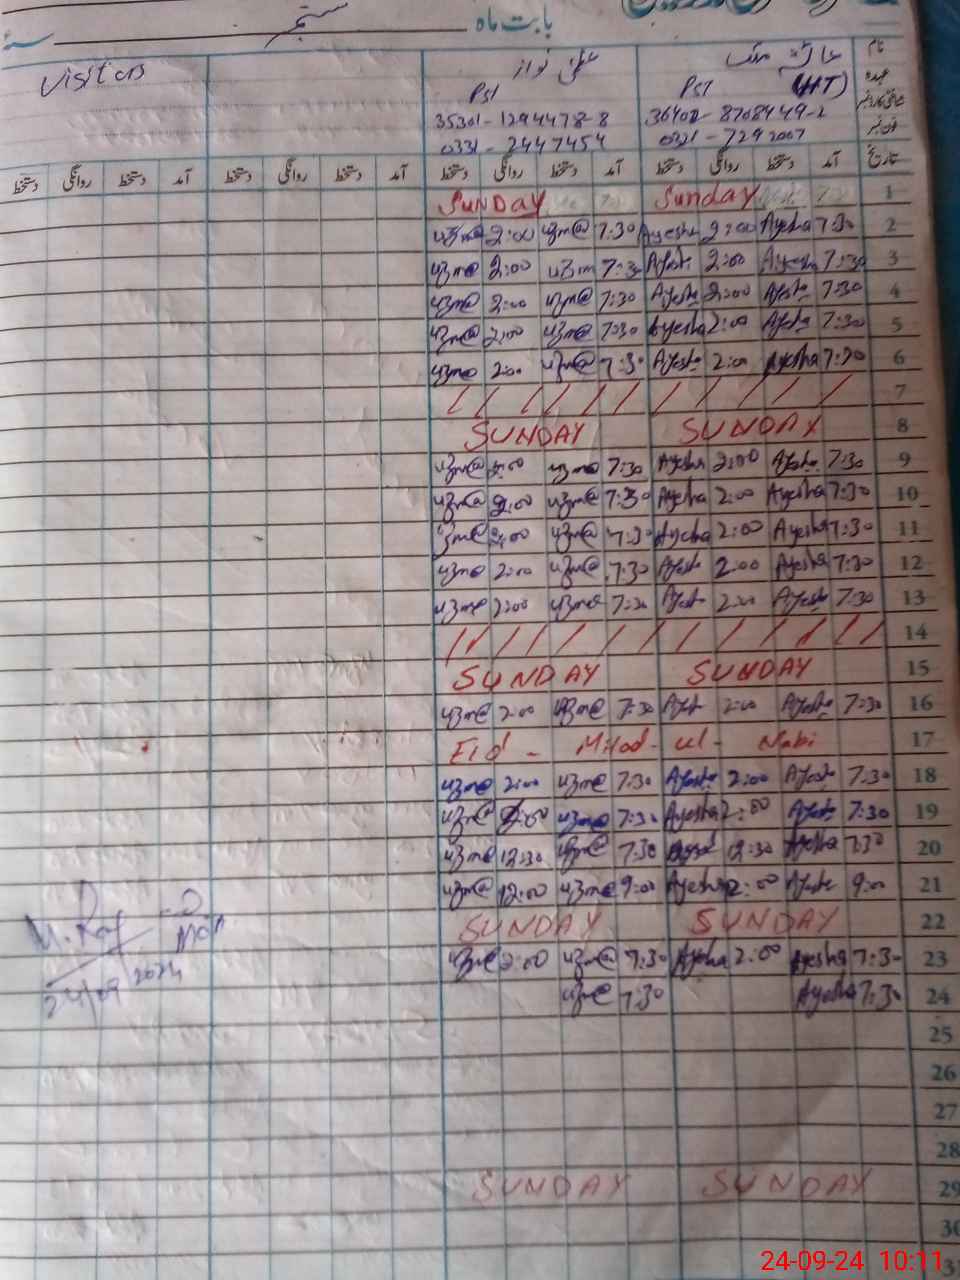 بابت ماہ ستمبر
Visitors
نام
عہدہ PST PST (HT)
شناختی کارڈ نمبر 35301-1294478-8 36402-8708449-2
فون نمبر 0331-2447454 0321-7292007
دستخط روانگی دستخط آمد دستخط روانگی دستخط آمد دستخط روانگی دستخط آمد دستخط روانگی دستخط آمد تاریخ
SUNDAY Sunday 1
uzma 2:00 uzma 7:30 Ayesha 2:00 Ayesha 7:30 2
uzma 2:00 uzma 7:30 Ayesha 2:00 Ayesha 7:30 3
uzma 2:00 uzma 7:30 Ayesha 2:00 Ayesha 7:30 4
uzma 2:00 uzma 7:30 Ayesha 2:00 Ayesha 7:30 5
uzma 2:00 uzma 7:30 Ayesha 2:00 Ayesha 7:30 6
7
SUNDAY SUNDAY 8
uzma 2:00 uzma 7:30 Ayesha 2:00 Ayesha 7:30 9
uzma 2:00 uzma 7:30 Ayesha 2:00 Ayesha 7:30 10
uzma 2:00 uzma 7:30 Ayesha 2:00 Ayesha 7:30 11
uzma 2:00 uzma 7:30 Ayesha 2:00 Ayesha 7:30 12
uzma 2:00 uzma 7:30 Ayesha 2:00 Ayesha 7:30 13
14
SUNDAY SUNDAY 15
uzma 2:00 uzma 7:30 Ayesha 2:00 Ayesha 7:30 16
Eid - Milad-ul-Nabi 17
uzma 2:00 uzma 7:30 Ayesha 2:00 Ayesha 7:30 18
uzma 2:00 uzma 7:30 Ayesha 2:00 Ayesha 7:30 19
uzma 12:30 uzma 7:30 Ayesha 12:30 Ayesha 7:30 20
uzma 12:00 uzma 9:00 Ayesha 12:00 Ayesha 9:00 21
SUNDAY SUNDAY 22
uzma 2:00 uzma 7:30 Ayesha 2:00 Ayesha 7:30 23
24/09/2024 uzma 7:30 Ayesha 7:30 24
25
26
27
28
SUNDAY SUNDAY 29
30
24-09-24 10:11